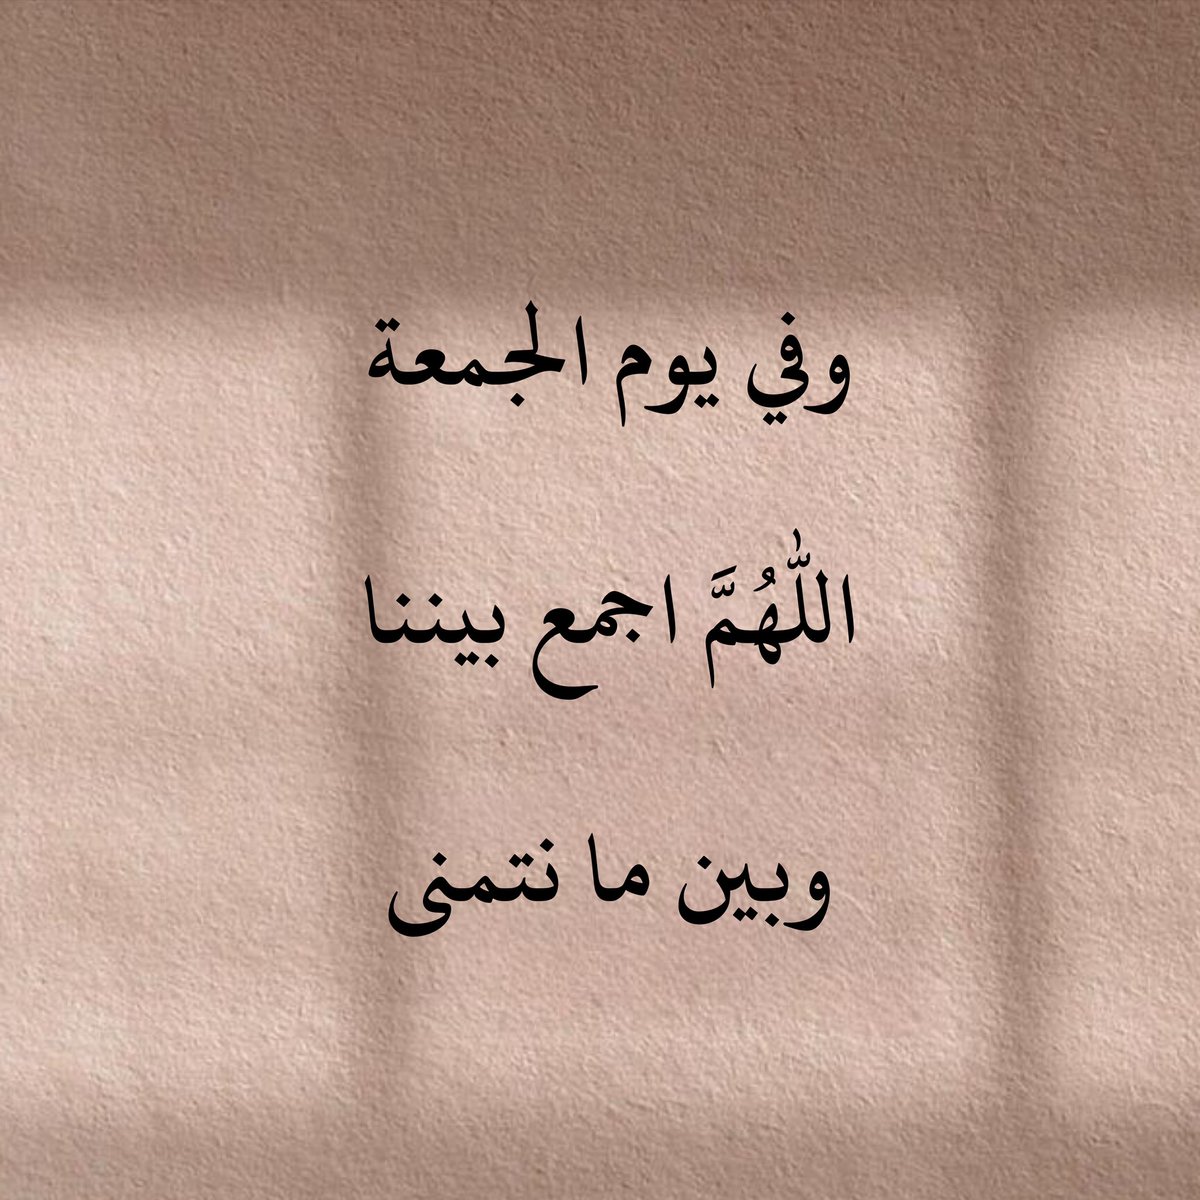 وفي يوم الجمعة
اللّٰهُمَّ اجمع بيننا
وبين ما نتمنى